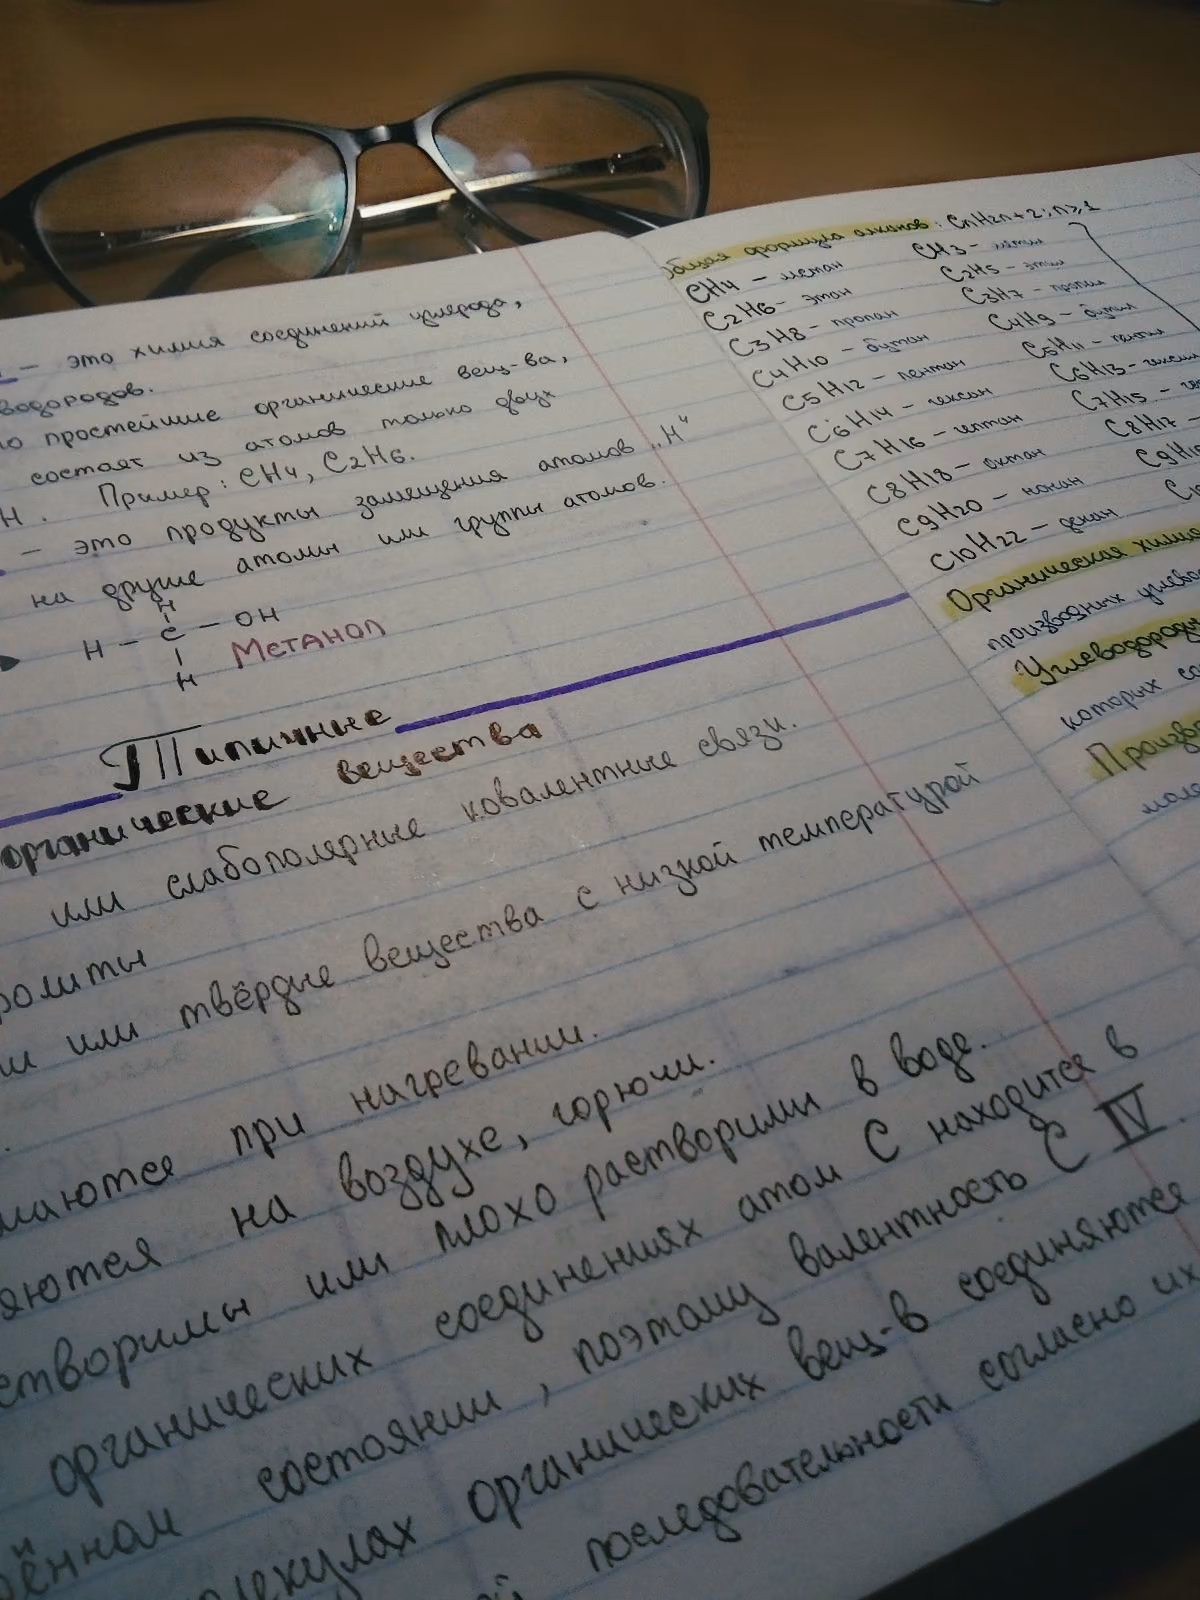 – это химия соединений углерода,
водородов.
простейшие органические вещ-ва,
состоят из атомов только двух
Н. Пример: CH4, C2H6.
– это продукты замещения атомов „Н"
на другие атомы или группы атомов.
H
H – C – OH
Метанол
H
Типичные
органические вещества
или слабополярные ковалентные связи.
ролиты
или твёрдые вещества с низкой температурой
лаются при нагревании.
яются на воздухе, горючи.
створимы или плохо растворимы в воде.
органических соединениях атом С находится в
ённом состоянии, поэтому валентность С IV.
лекулах органических вещ-в соединяются
последовательности согласно их
Общая формула алканов: CnH2n+2; n≥1
CH4 – метан CH3 – метил
C2H6 – этан C2H5 – этил
C3H8 – пропан C3H7 – пропил
C4H10 – бутан C4H9 – бутил
C5H12 – пентан C5H11 – пентил
C6H14 – гексан C6H13 – гексил
C7H16 – гептан C7H15 –
C8H18 – октан C8H17 –
C9H20 – нонан C9H19
C10H22 – декан C10
Органическая химия
производных углево
Углеводороды
которых со
Произво
моле